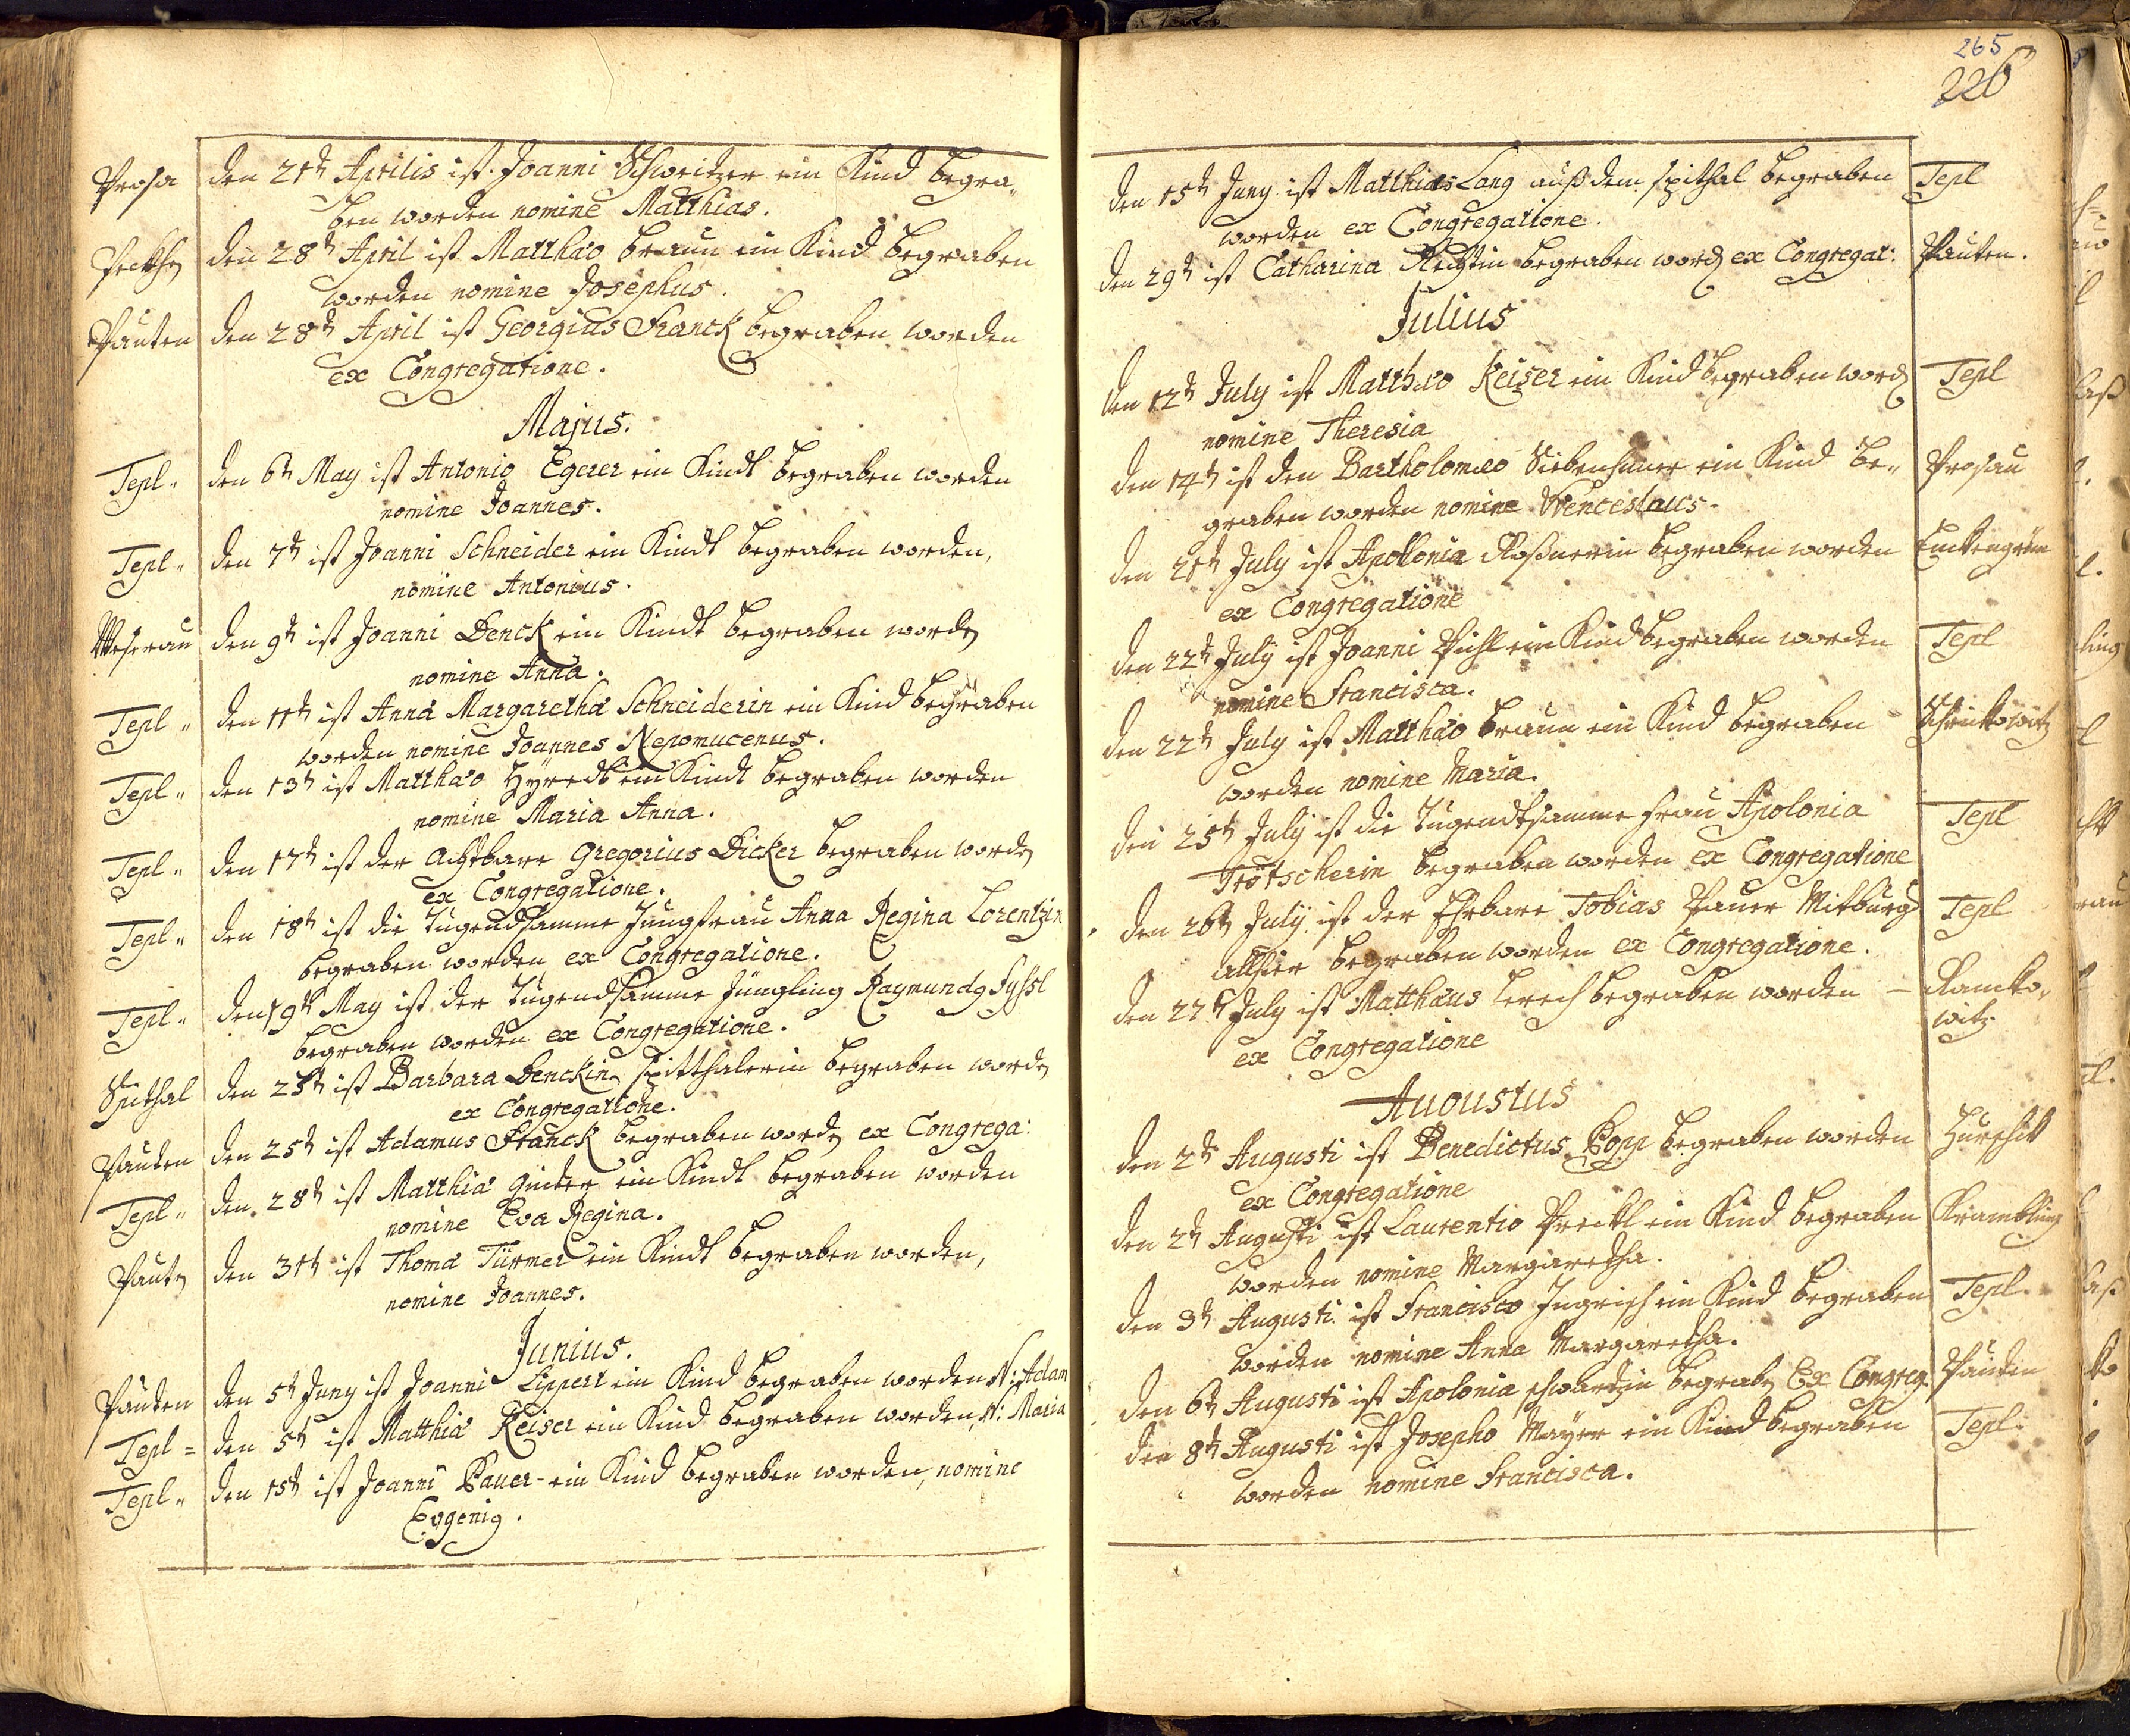 Prosa den 21t Aprilis ist Joanni Schweitzer ein Kind begra„
ben worden nomine Matthias.
den 28t April ist Matthäo Braun ein Kind begraben
worden nomine Josephus.
Pauten den 28t April ist Georgius Franck begraben worden
ex Congregatione.
Majus.
Tepl„ den 6t May ist Antonio Egerer ein Kindt begraben worden
nomine Joannes.
Tepl„ den 7t ist Joanni Schneider ein Kindt begraben worden,
nomine Antonius.
Weserau den 9t ist Joanni Denck ein Kindt begraben worden
nomine Anna.
Tepl„ den 11t ist Anna Margaretha Schneiderin ein Kind begraben
worden nomine Joannes Nepomucenus.
Tepl„ den 13t ist Matthäo ein Kindt begraben worden
nomine Maria Anna.
Tepl„ den 17t ist der Achtbare Gregorius Dicker begraben worden
ex Congregatione.
Tepl„ den 18t ist die Tugendsamme Jungfrau Anna Regina Lorentzin
begraben worden ex Congregatione.
Tepl„ den 19t May ist der Tugendsamme Jüngling Raymundg
begraben worden ex Congregatione.
Spithal den ist Barbara Denckin Spitthalerin begraben worden
ex Congregatione.
Pauten den 25t ist Adamus Franck begraben worden ex Congrega:
Tepl„ den 28t ist Matthiä ein Kindt begraben worden
nomine Eva Regina.
Pauten den 31t ist Thoma Türmer ein Kindt begraben worden,
nomine Joannes.
Junius.
Pauten den 5t Juny ist Joanni Lippert ein Kind begraben worden N: Adam
Tepl= den 5t ist Matthiä Keiser ein Kind begraben worden, N: Maria
Tepl„ den 15t ist Joanni Pauer ein Kind begraben worden, nomine
Evgenig.
265
226
den 15t Juny ist Matthias Lang auß dem Spithal begraben Tepl
worden ex Congregatione.
den 29t ist Catharina begraben worden ex Congregat: Pauten.
Julius
den 12t July ist Matthæo Keiser ein Kind begraben worden Tepl
nomine Theresia
den 14t ist den Bartholomæo Siebenhuner ein Kind be„ Prosau
graben worden nomine Wenceslaus.
den 21t July ist Apollonia Roßnerin begraben worden
ex Congregatione
den 22t July ist Joanni Pichl ein Kind begraben worden Tepl
nomine Francisca.
den 22t July ist Matthäo Braun ein Kind begraben Schrikowitz
worden nomine Maria.
den 25t July ist die Tugendtsamme Frau Apolonia Tepl
Trötscherin begraben worden ex Congregatione
den 26t July ist der Ehrbare Tobias Pauer Mitburg Tepl
allhier begraben worden ex Congregatione.
den 27t July ist Matthäus Lerch begraben worden – Ramko„
witz.
ex Congregatione
Augustus
den 2t Augusti ist Benedictus Popp begraben worden Hurschk
ex Congregatione
den 2t Augusti ist Laurentio Preckl ein Kind begraben Krambling
worden nomine Margaretha.
den 3t Augusti ist Francisco Ingrisch ein Kind begraben Tepl.
worden nomine Anna Margaretha.
den 6t Augusti ist Apolonia Schwartzin begraben Ex Congreg. Pauten
den 8t Augusti ist Josepho Mayer ein Kind begraben Tepl.
worden nomine Francisca.